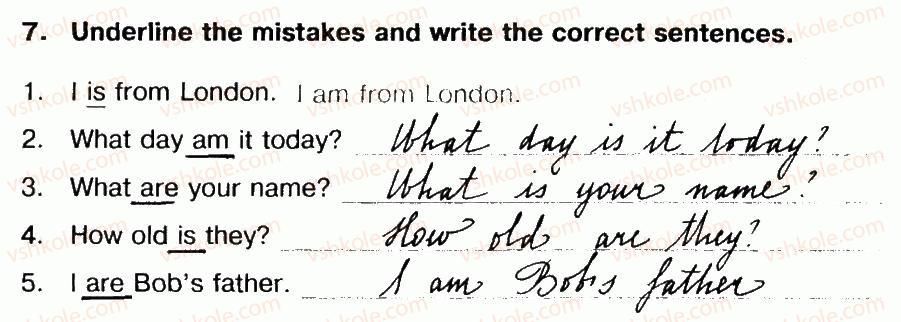 7. Underline the mistakes and write the correct sentences.
1. I is from London. I am from London.
2. What day am it today? What day is it today?
3. What are your name? What is your name?
4. How old is they? How old are they?
5. I are Bob's father. I am Bob's father